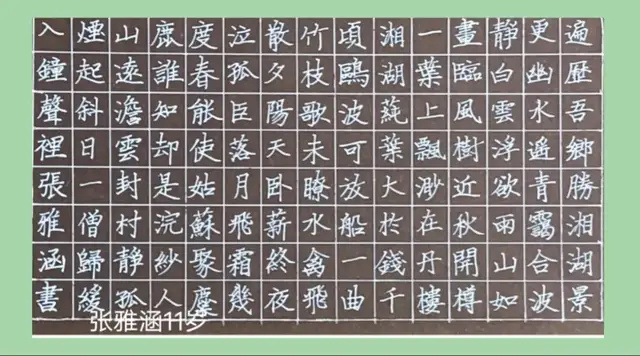 遍歷吾鄉勝湘湖景
更幽水遙青靄合波
靜白雲浮欲雨山如
畫臨風樹近秋開樽
一葉上飄渺在丹樓
湘湖蒓葉大於錢千
頃鷗波可放船一曲
竹枝歌未瞭水禽飛
散夕陽天臥薪終夜
泣孤臣落月飛霜幾
度春能使姑蘇聚麋
鹿誰知却是浣紗人
山遠澹雲封村靜孤
煙起斜日一僧歸緩
入鐘聲裡張雅涵書
张雅涵11岁